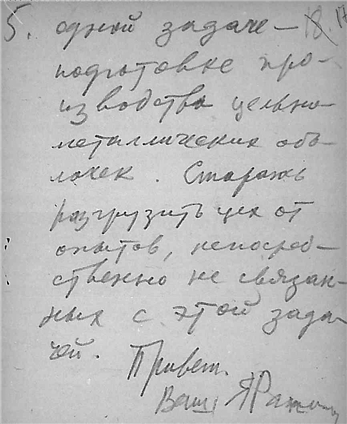 5. одной задаче – 18. 17
подготовке про-
изводства цельно-
металлических обо-
лочек. Стараюсь
разгрузить цех от
опытов, непосред-
ственно не связан-
ных с этой зада-
чей.
Привет.
Ваш